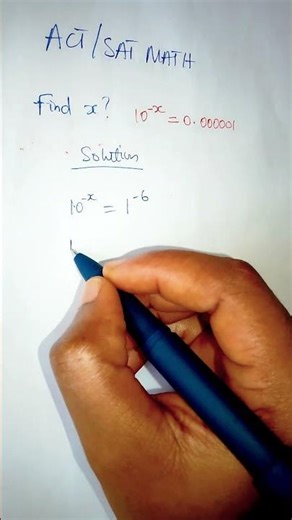 ACT/SAT MATH
Find x? 10^-x = 0.000001
Solution
10^-x = 1^-6
1